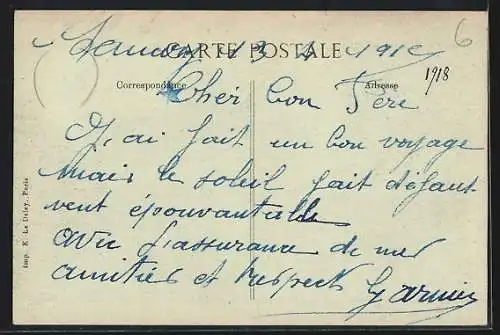 CARTE POSTALE
6
13 1918
1918
Correspondance
Adresse
Cher bon Père
J'ai fait un bon voyage
mais le soleil fait défaut
vent épouvantable
avec l'assurance de mes
amitiés et respects Garnier
Imp. E. Le Deley, Paris